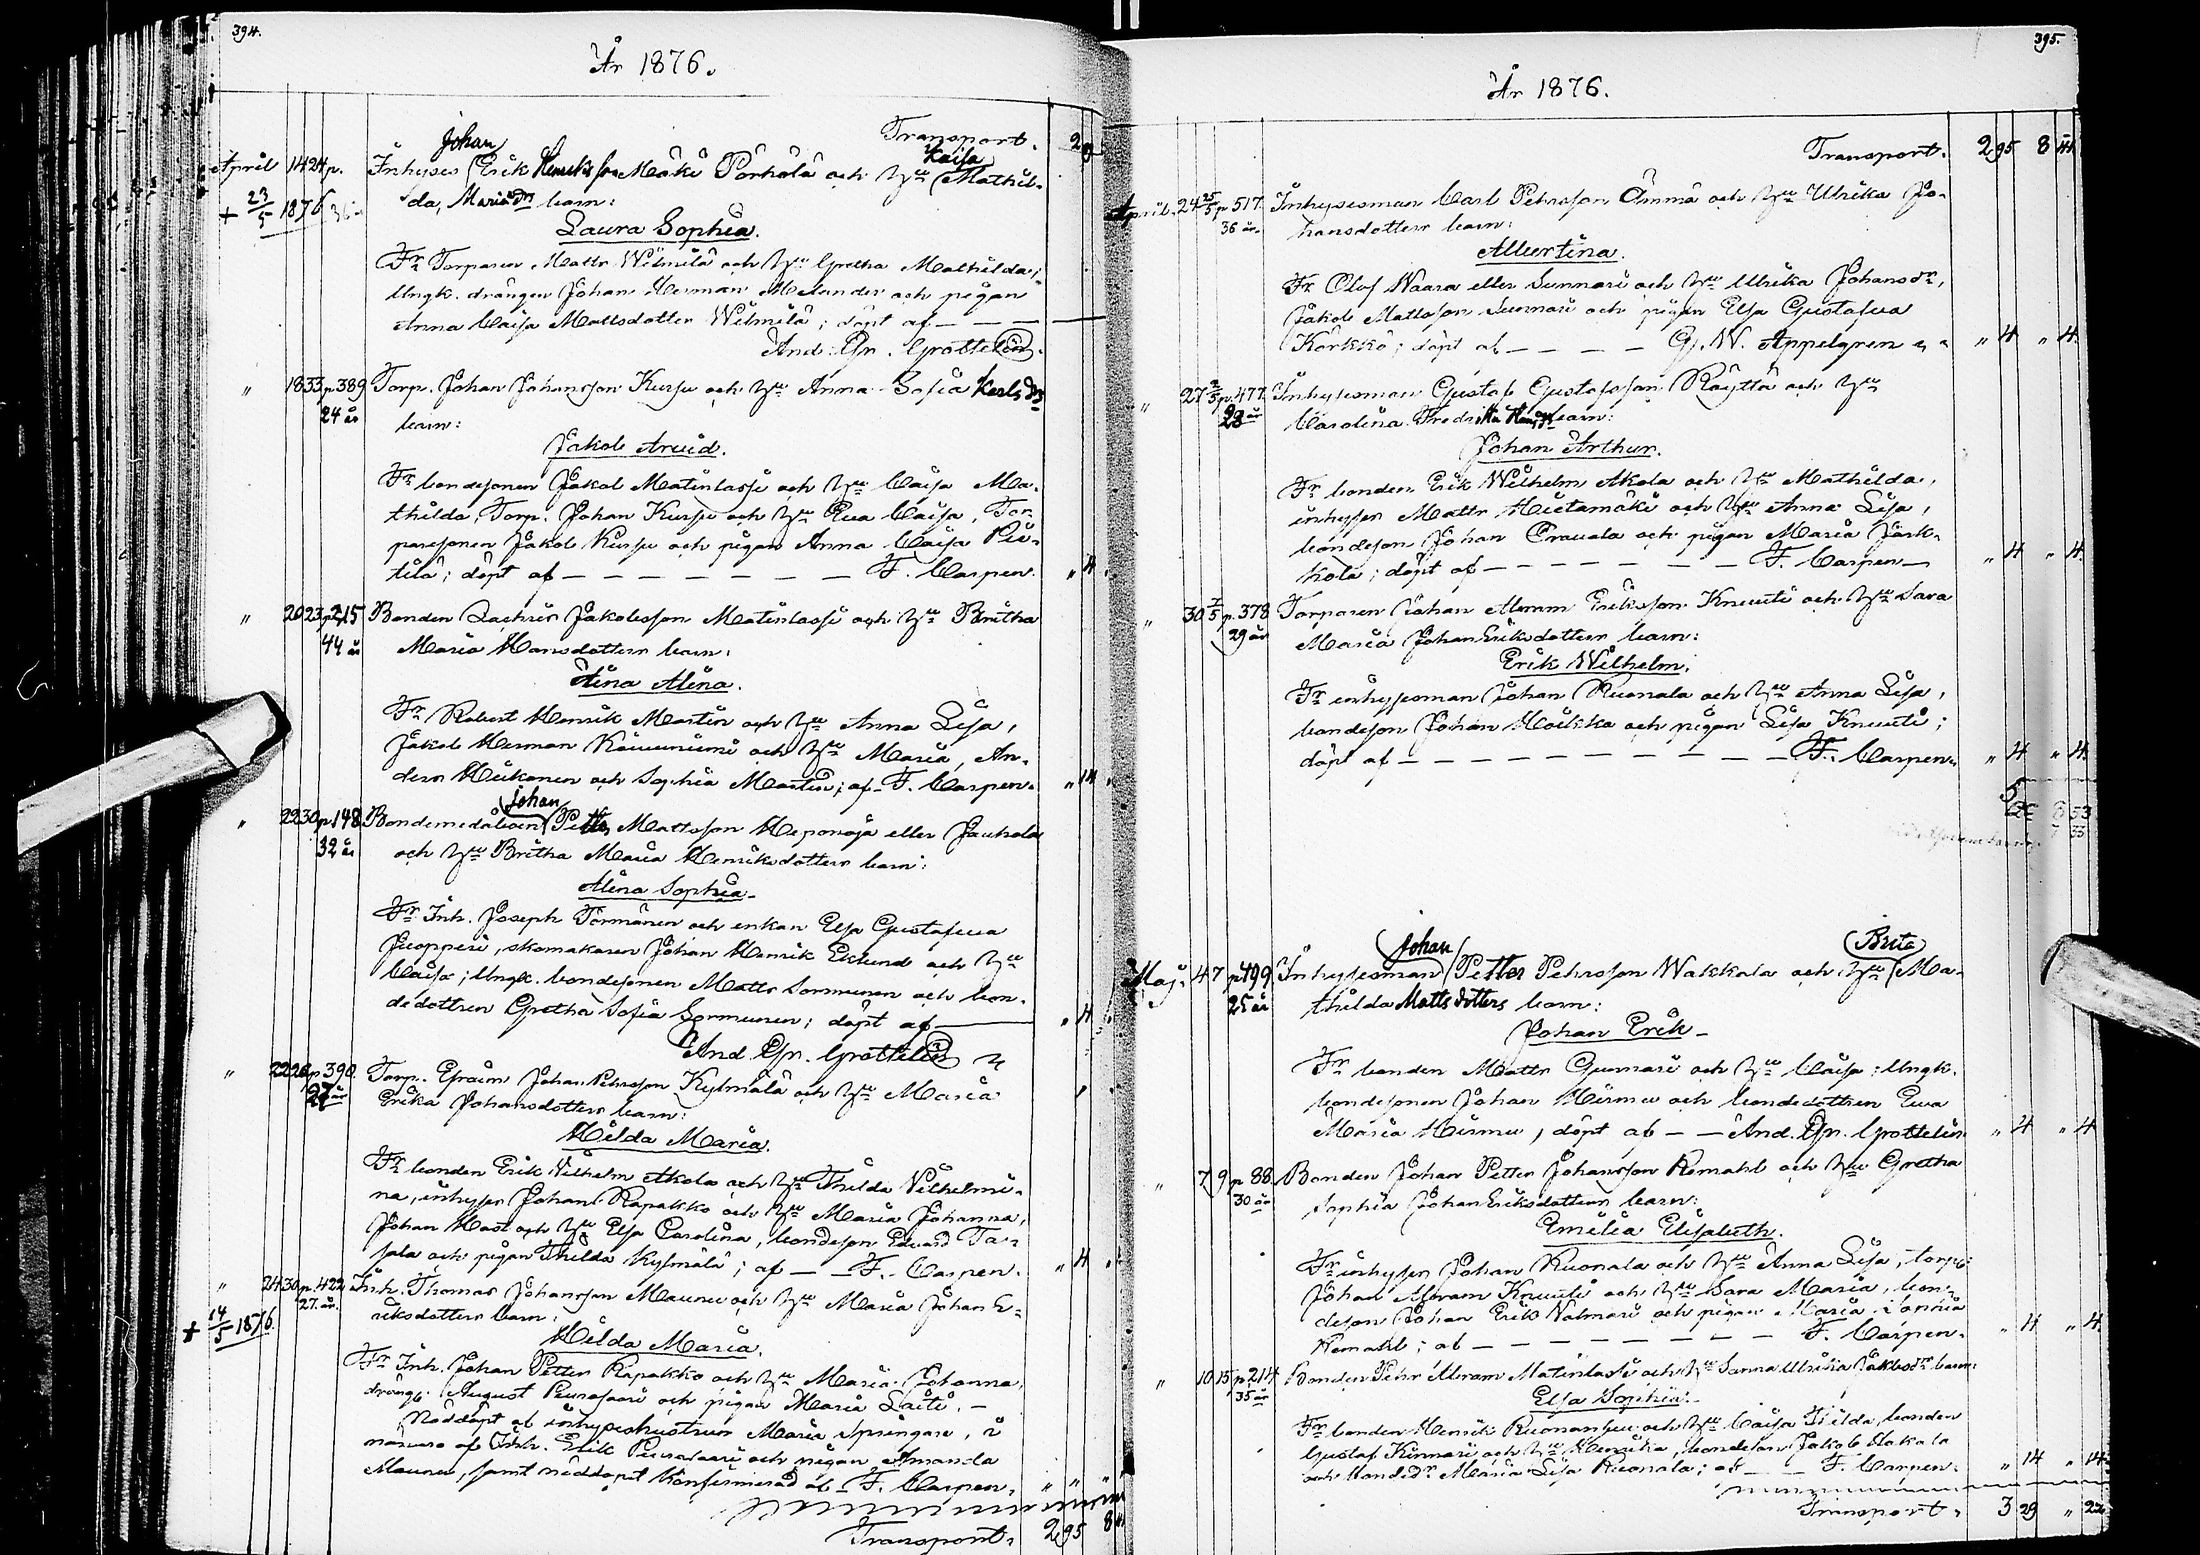 394.
År 1876.
Transport. 2
Johan Kaisa
April 14 24 p. Inhyses Erik Henriksson Mäki Pörhölä och H:u Mathil-
+ 23/5 1876 da, Mariedr barn:
Laura Sophia.
Fr Torparen Matts Wilmilä och H:u Gretha Mathilda,
Ungk. drängen Johan Herman Melander och pigan
Anna Caisa Mattsdotter Wilmilä; döpt af — — —
And. Gr. Grottelin.
" 18 33 p 389 Torp. Johan Johansson Kursu och H:u Anna Sofia Karlsdr
24 år barn:
Jakob Arvid.
Fr bondesonen Jakob Matinlassi och H:u Caisa Ma-
thilda, Torp. Johan Kursu och H:u Eva Caisa, Tor-
paresonen Jakob Kursu och pigan Anna Caisa Pii-
tilä; döpt af — — — — — — — F. Carpen. " 4
" 20 23 p 215 Bonden Zachris Jakobsson Matinlassi och H:u Britha
44 år Maria Hansdotters barn:
Aina Alina.
Fr Robert Henrik Martin och H:u Anna Lisa,
Jakob Herman Kaiuuniemi och H:u Maria, An-
ders Heikanen och Sophia Martin; af F. Carpen. " 14
Johan
" 22 30 p 148 Bondemedåboen Petter Mattsson Heponoja eller Jauhola
32 år och H:u Britha Maria Henriksdotters barn:
Alina Sophia.
Fr Inh. Joseph Törmänen och enkan Elsa Gustafwa
Juopperi, skomakaren Johan Henrik Eklund och H:u
Caisa; Ungk. bondesonen Matts Sormunen och bon-
dedottren Gretha Sofia Sormunen; döpt af — " 4
And. Gr. Grottelin
" 22 26 p 390 Torp. Efraim Johan Pehrsson Kylmälä och H:u Maria
27 år Erika Johansdotters barn:
Hilda Maria.
Fr bonden Erik Wilhelm Akola och H:u Thilda Vilhelmi-
na, inhyses Johan Rapakko och H:u Maria Johanna,
Johan Hast och H:u Elsa Carolina, bondeson Edvard Ta-
pala och pigan Thilda Kylmälä; af — — F. Carpen. " 4
" 24 30 p. 422 Inh. Thomas Johansson Maunu och H:u Maria Johan E-
27. år. riksdotters barn:
+ 14/5 1876.
Hilda Maria.
Fr Inh. Johan Petter Rapakko och H:u Maria Johanna,
dräng. August Peurasaari och pigan Maria Laiti. —
Nöddöpt af inhyseshustrun Maria Springare, i
närvaro af Inh. Erik Peurasaari och pigan Amanda
Maunu, samt nöddopet konfirmerad af F. Carpen. " "
Transport. 2 95 8
395.
År 1876.
Transport. 2 95 8 44
April. 24 25/5 p 517 Inhysesman Carl Pehrsson Ämmä och H:u Ulrika Jo-
36 år. hansdotters barn:
Albertina.
Fr Olof Waara eller Sunnari och H:u Ulrika Johansdr,
Jakob Mattsson Sunnari och pigan Elsa Gustafwa
Körkkö; döpt af — — — — G. W. Appelgren " 4 " 4.
" 27 2/5 p. 477 Inhysesman Gustaf Gustafsson Räyttä och H:u
28 år Carolina Fredrika Hansdr barn:
Johan Arthur.
Fr bonden Erik Wilhelm Akola och H:u Mathilda,
inhyses Matts Hietamäki och H:u Anna Lisa,
bondeson Johan Eravala och pigan Maria Jark-
kola; döpt af — — — — — — — F. Carpen — " 4 " 4.
" 30 7/5 p. 378 Torparen Johan Abram Eriksson Knuuti och H:u Sara
29 år Maria Johan Eriksdotters barn:
Erik Wilhelm.
Fr inhysesman Johan Ruonala och H:u Anna Lisa,
bondeson Johan Hoikka och pigan Lisa Knuuti;
döpt af — — — — — — — — — F. Carpen. " 4 " 4.
Johan Brita
Maj. 4 7 p 499 Inhysesman Petter Pehrsson Wakkala och H:u Ma-
25 år thilda Mattsdotters barn:
Johan Erik —
Fr bonden Matts Gunnari och H:u Caisa; Ungk.
bondesonen Johan Hirmu och bondedottren Eva
Maria Hirmu, döpt af — — And. Gr. Grottelin " 4 " 4
" 7 9 p 88 Bonden Johan Petter Johansson Remahl och H:u Gretha
30 år Sophia Johan Eriksdotters barn:
Emilia Elisabeth.
Fr inhyses Johan Ruonala och H:u Anna Lisa, torp.
Johan Abram Knuuti och H:u Sara Maria, bon-
deson Johan Erik Walmari och pigan Maria Sophia
Remahl; af — — — — — — — — F. Carpen. " 4 " 4
" 10 15 p 214 Bonden Pehr Abram Matinlassi och H:u Sanna Ulrika Jakobsdr barn:
35 år
Elsa Sophia.
Fr bonden Henrik Ruonansuu och H:u Caisa Thilda, bonden
Gustaf Kinnari och H:u Henrika, bondeson Jakob Hakala
och bondedr Maria Lisa Ruonala; af — — F. Carpen. " 14 " 14
Transport. 3 29 " 22